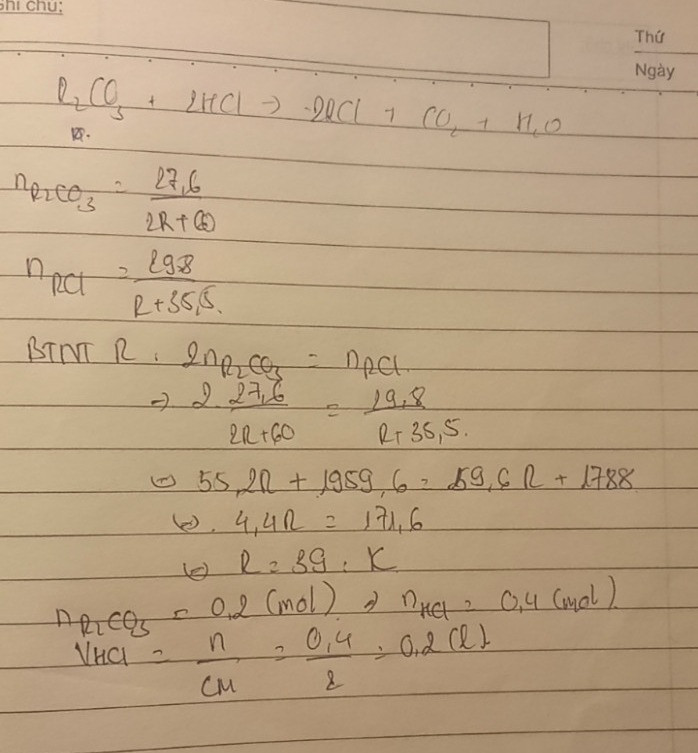 Ghi chú:
Thứ
Ngày
R₂CO₃ + 2HCl → 2RCl + CO₂ + H₂O
n_R₂CO₃ = 27,6 / (2R+60)
n_RCl = 29,8 / (R+35,5)
BTNT R : 2n_R₂CO₃ = n_RCl
→ 2. 27,6 / (2R+60) = 29,8 / (R+35,5)
⇔ 55,2R + 1959,6 = 59,6R + 1788
⇔ 4,4R = 171,6
⇔ R = 39 : K
n_R₂CO₃ = 0,2 (mol) → n_HCl = 0,4 (mol)
V_HCl = n / CM = 0,4 / 2 = 0,2 (l)